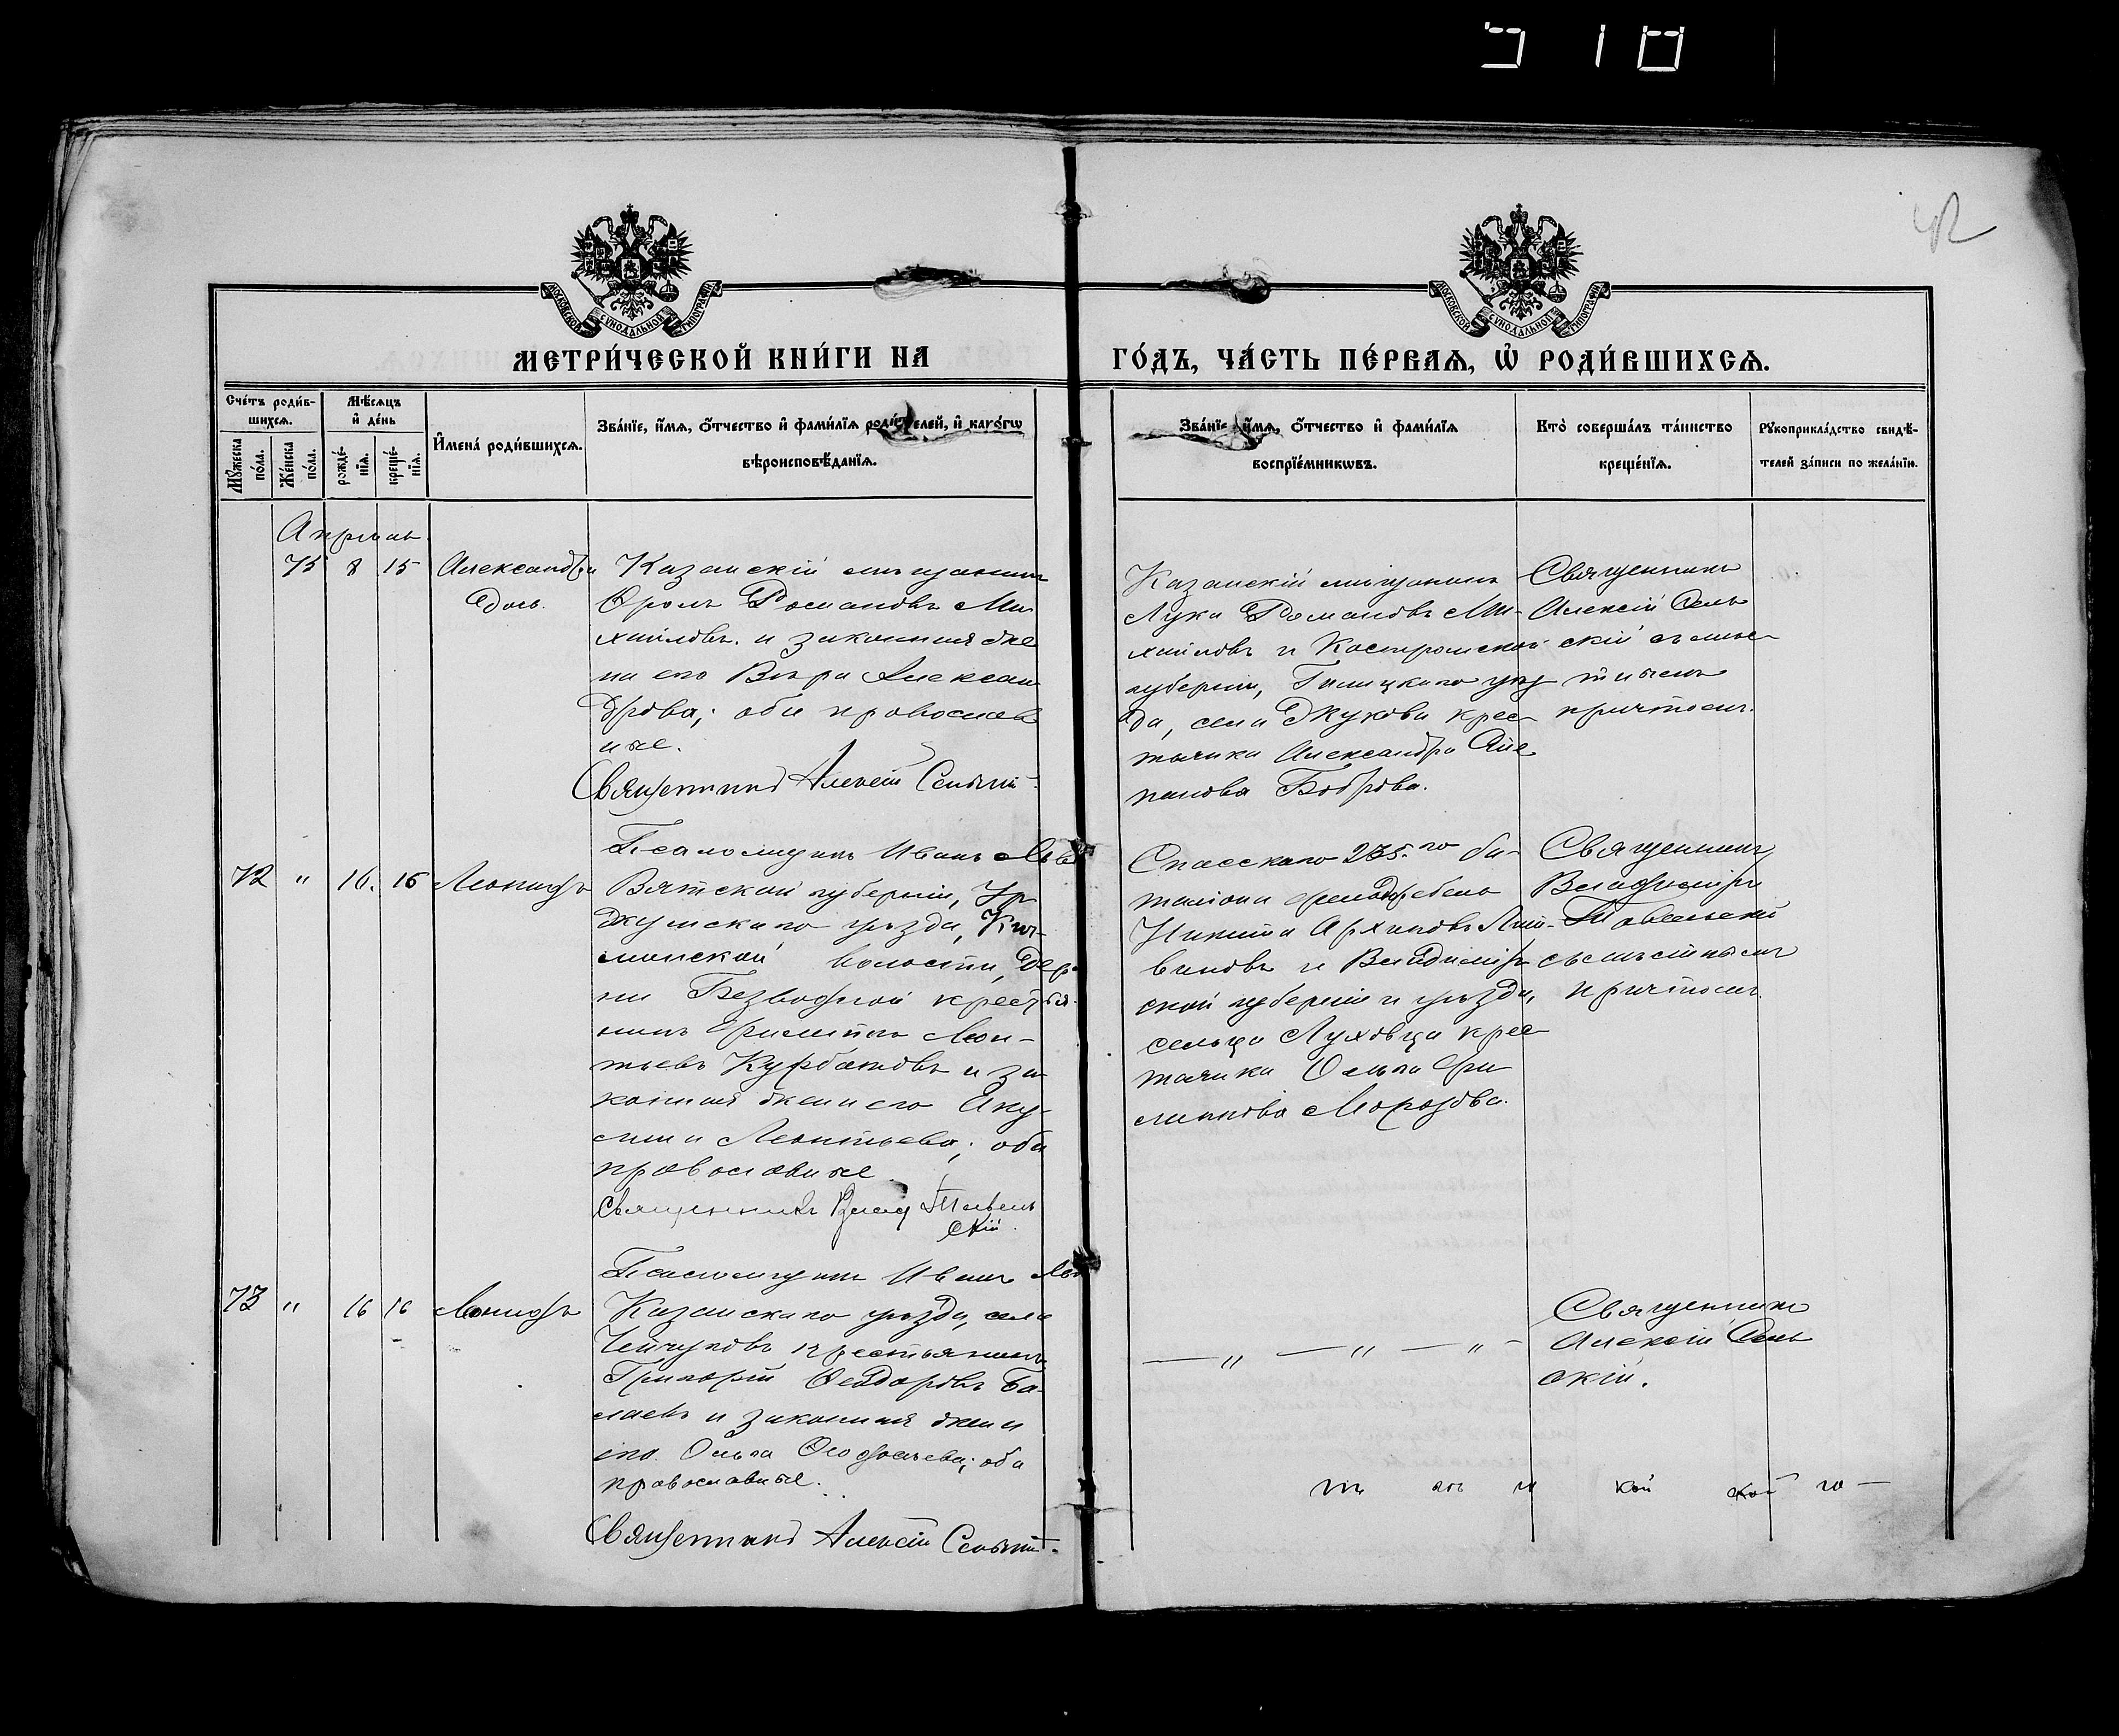 42
МОСКОВСКОЙ СУНОДАЛЬНОЙ ТИПОГРАФІИ
МОСКОВСКОЙ СУНОДАЛЬНОЙ ТИПОГРАФІИ
МЕТРИ́ЧЕСКОЙ КНИ́ГИ НА
ГО́ДЪ, ЧА́СТЬ ПЕ́РВАѦ, Ѡ҆ РОДИ́ВШИХСѦ.
Сче́тъ роди́в-
шихсѧ.
Мꙋ́жеска по́ла.
Же́нска по́ла.
Мѣ́сѧцъ
и҆ де́нь
рожде́-
нїѧ.
креще́-
нїѧ.
И҆мена̀ роди́вшихсѧ.
Зва́нїе, и҆́мѧ, ѻ҆́тчество и҆ фами́лїѧ роди́телей, и҆ како́гѡ
вѣроисповѣ́данїѧ.
Зва́нїе, и҆́мѧ, ѻ҆́тчество и҆ фами́лїѧ
воспрїе́мникѡвъ.
Кто̀ соверша́лъ та́инство
креще́нїѧ.
Рꙋкоприкла́дство свидѣ́-
телей за́писи по жела́нїю.
Апрѣль
75 8 15
Александра
Казанскій мѣщанинъ
Фролъ Романовъ Ми-
хайловъ и законная же
на его Вѣра Алексан
дрова; оба православ
ные.
Священникъ Алексій Сельскій
Казанскій мѣщанинъ
Лука Романовъ Ми-
хайловъ и Костромской
губерніи, Галицкаго уѣз
да, села Жукова крес-
тьянка Александра
Боброва.
Священникъ
Алексій Сель
скій съ мѣс-
тнымъ
причтомъ.
72 " 16. 16 Леонидъ
Псаломщикъ Иванъ Льв
Вятской губерніи, Ур
жумскаго уѣзда,
волости, дер
ни Безводной крестья
нинъ Филиппъ Леон-
тьевъ Курбатовъ и за-
конная жена его Аку-
лина Леонтьева; оба
православные
Священникъ Влад Павель
скій.
Спасскаго 235.го ба-
таліона фельдфебель
Никита Архиповъ Лит-
виновъ и Владимір
ской губерніи и уѣзда,
сельца Луховца крес
тьянка Ольга Фи
липпова Морозова.
Священникъ
Владиміръ
Павельскій
съ мѣстнымъ
причтомъ.
73 " 16 16 Леонидъ
Псаломщикъ Иванъ Льв
Казанскаго уѣзда, села
крестьянинъ
Григорій Ѳеодоровъ Ба-
лаевъ и законная жена
его Ольга; оба
православные.
Священникъ Алексій Сельскій.
— " — " — " —
Священникъ
Алексій Сель
скій.